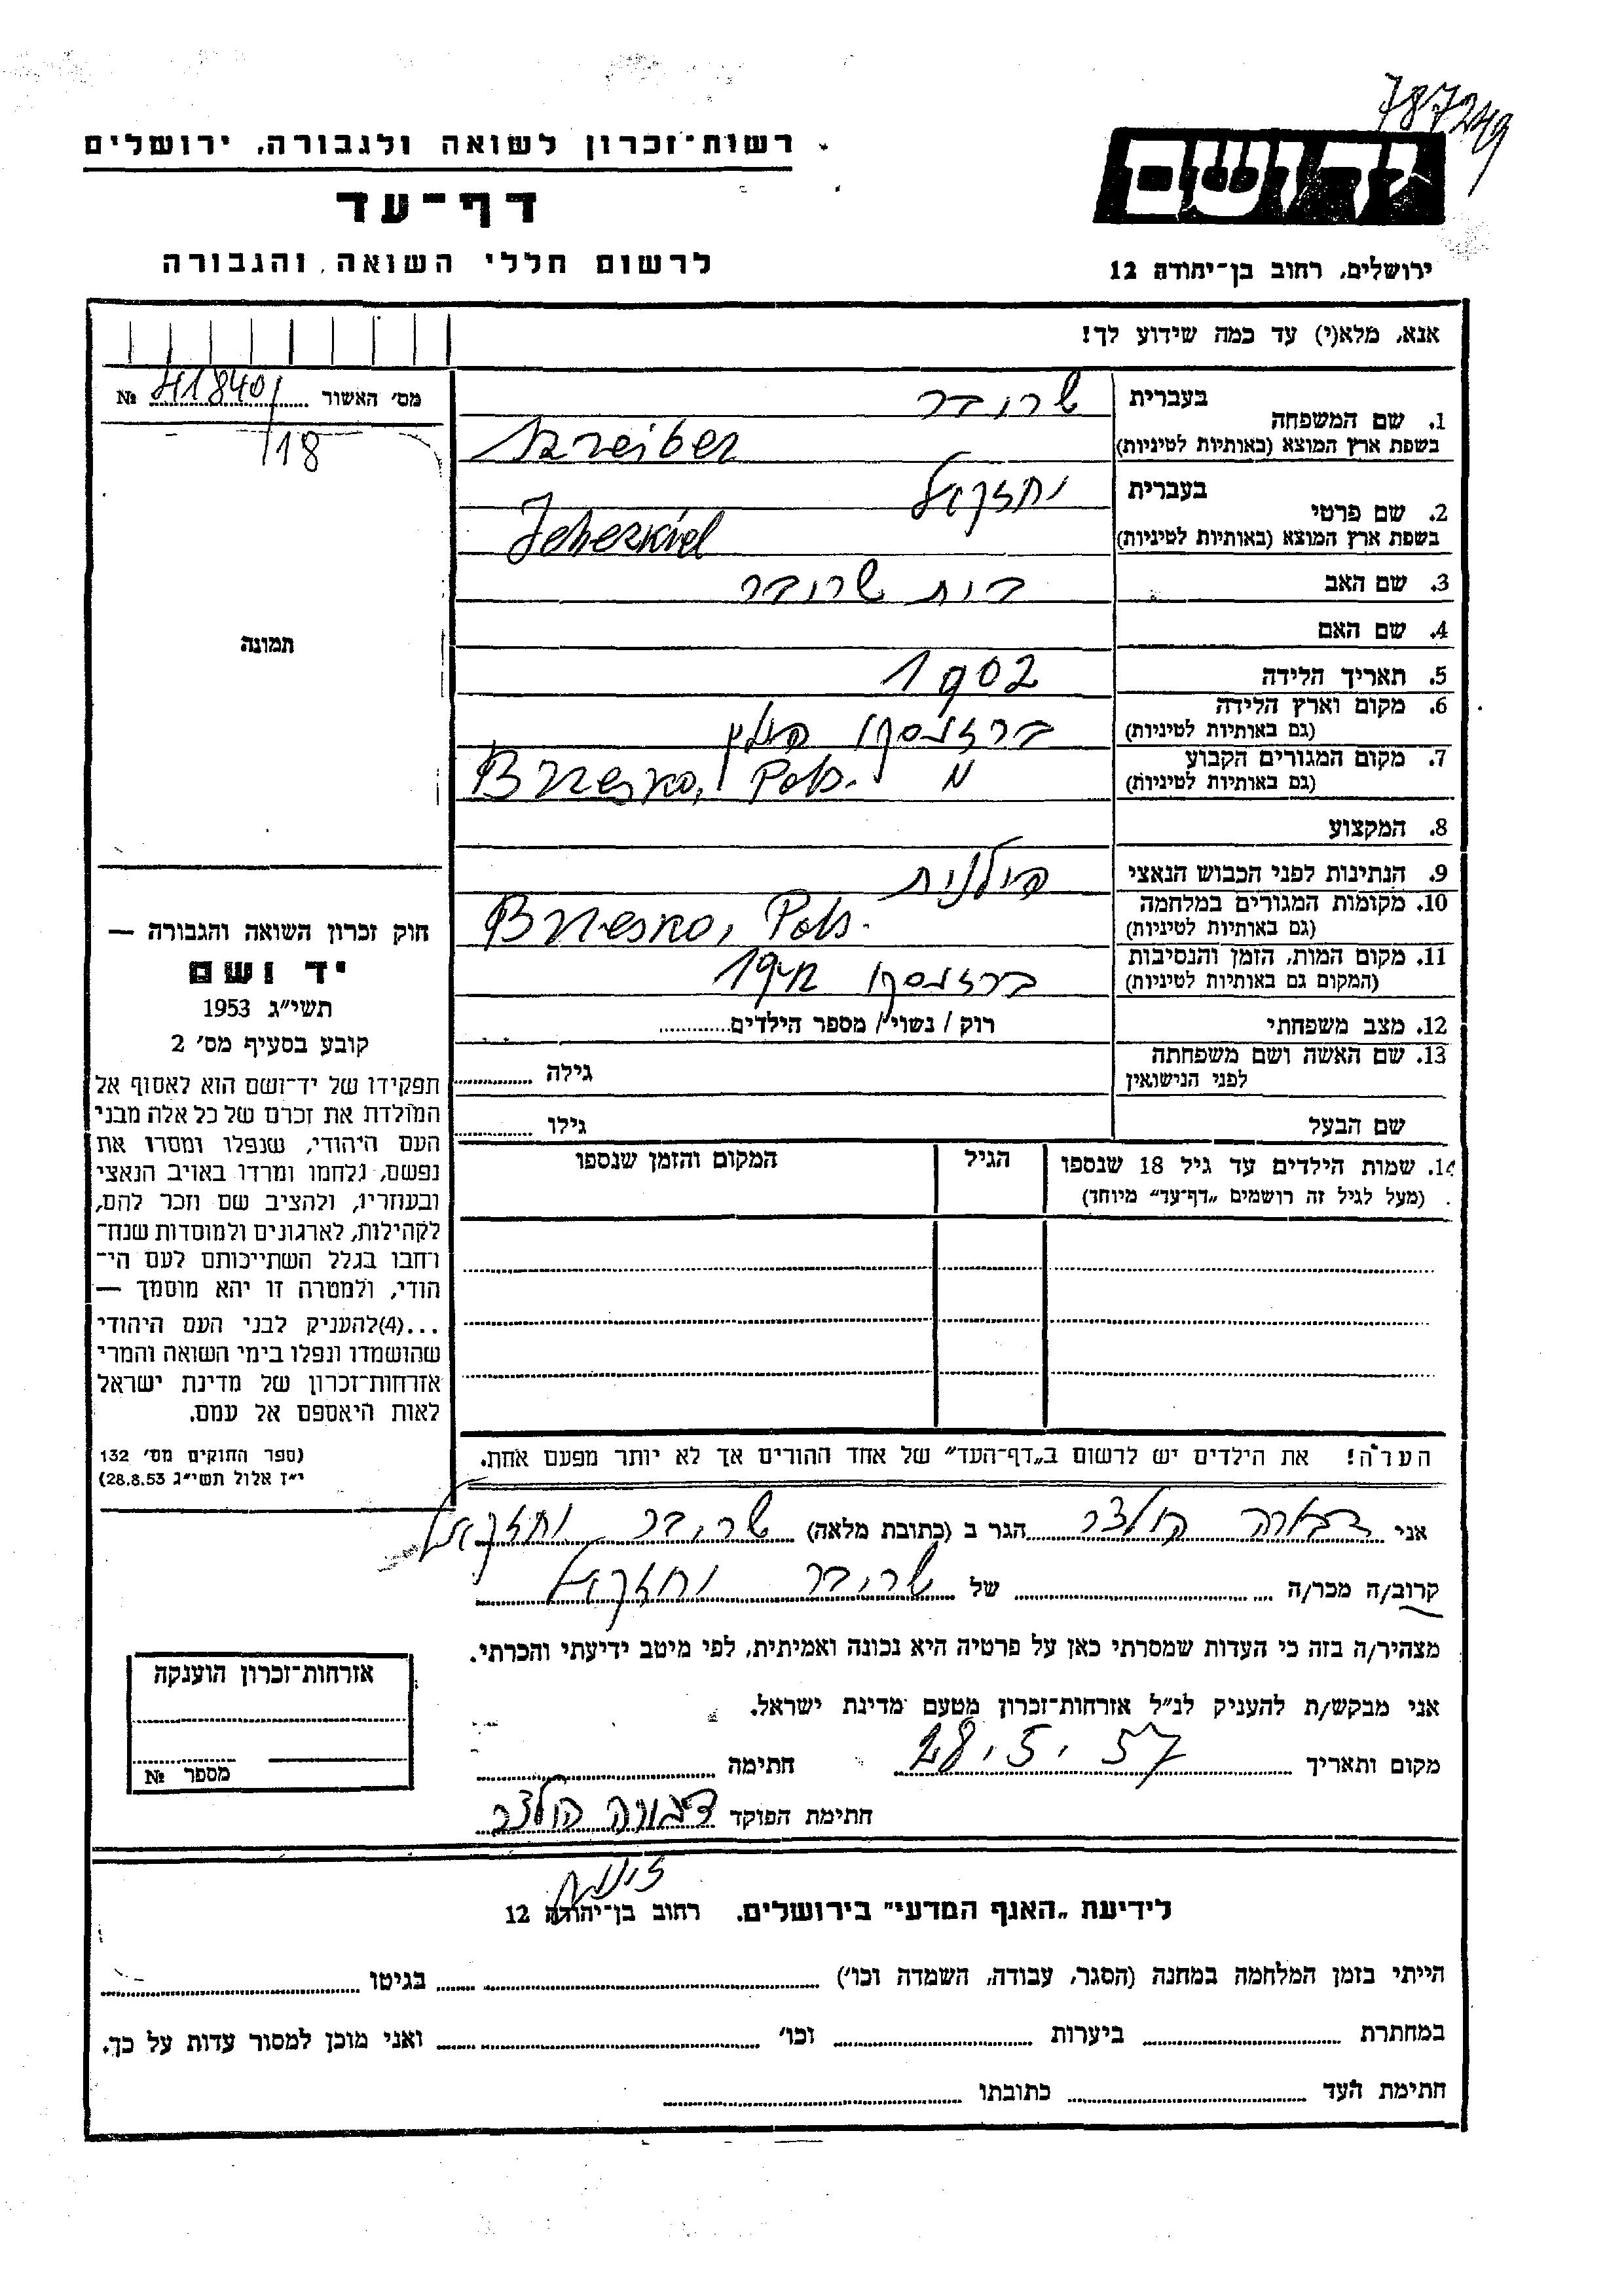 787249
רשות־זכרון לשואה ולגבורה, ירושלים
דף־עד
לרשום חללי השואה והגבורה
יד ושם
ירושלים, רחוב בן־יהודה 12
אנא, מלא(י) עד כמה שידוע לך!
מס׳ האשור № 418401
/18
תמונה
1. שם המשפחה בעברית שרובר
בשפת ארץ המוצא (באותיות לטיניות) Szreiber
2. שם פרטי בעברית יחזקאל
בשפת ארץ המוצא (באותיות לטיניות) Jehezkiel
3. שם האב שרובר
4. שם האם
5. תאריך הלידה 1902
6. מקום וארץ הלידה
(גם באותיות לטיניות) ברזסקו פולין
7. מקום המגורים הקבוע
(גם באותיות לטיניות) Brzesko, Pols. "
8. המקצוע
9. הנתינות לפני הכבוש הנאצי פולנית
10. מקומות המגורים במלחמה
(גם באותיות לטיניות) Brzesko, Pols.
11. מקום המות, הזמן והנסיבות
(המקום גם באותיות לטיניות) ברזסקו 1942
12. מצב משפחתי רוק / נשוי / מספר הילדים
13. שם האשה ושם משפחתה
לפני הנישואין גילה
שם הבעל גילו
14. שמות הילדים עד גיל 18 שנספו הגיל המקום והזמן שנספו
(מעל לגיל זה רושמים „דף־עד״ מיוחד)
חוק זכרון השואה והגבורה —
יד ושם
תשי״ג 1953
קובע בסעיף מס׳ 2
תפקידו של יד־ושם הוא לאסוף אל
המולדת את זכרם של כל אלה מבני
העם היהודי, שנפלו ומסרו את
נפשם, נלחמו ומרדו באויב הנאצי
ובעוזריו, ולהציב שם וזכר להם,
לקהילות, לארגונים ולמוסדות שנח־
רחבו בגלל השתייכותם לעם הי־
הודי, ולמטרה זו יהא מוסמך —
...(4)להעניק לבני העם היהודי
שהושמדו ונפלו בימי השואה והמרי
אזרחות־זכרון של מדינת ישראל
לאות היאספם אל עמם.
(ספר החוקים מס׳ 132
י״ז אלול תשי״ג 28.8.53)
הערה! את הילדים יש לרשום ב„דף־העד״ של אחד ההורים אך לא יותר מפעם אחת.
אני הולצר הגר ב (כתובת מלאה) שרובר יחזקאל
קרוב/ה מכר/ה של שרובר יחזקאל
מצהיר/ה בזה כי העדות שמסרתי כאן על פרטיה היא נכונה ואמיתית, לפי מיטב ידיעתי והכרתי.
אני מבקש/ת להעניק לנ״ל אזרחות־זכרון מטעם מדינת ישראל.
מקום ותאריך 28.5.57 חתימה
חתימת הפוקד הולצר
אזרחות־זכרון הוענקה
מספר №
לידיעת „האגף המדעי״ בירושלים. רחוב בן־יהודה 12
הייתי בזמן המלחמה במחנה (הסגר, עבודה, השמדה וכו׳) בגיטו
במחתרת ביערות וכו׳ ואני מוכן למסור עדות על כך.
חתימת העד כתובתו